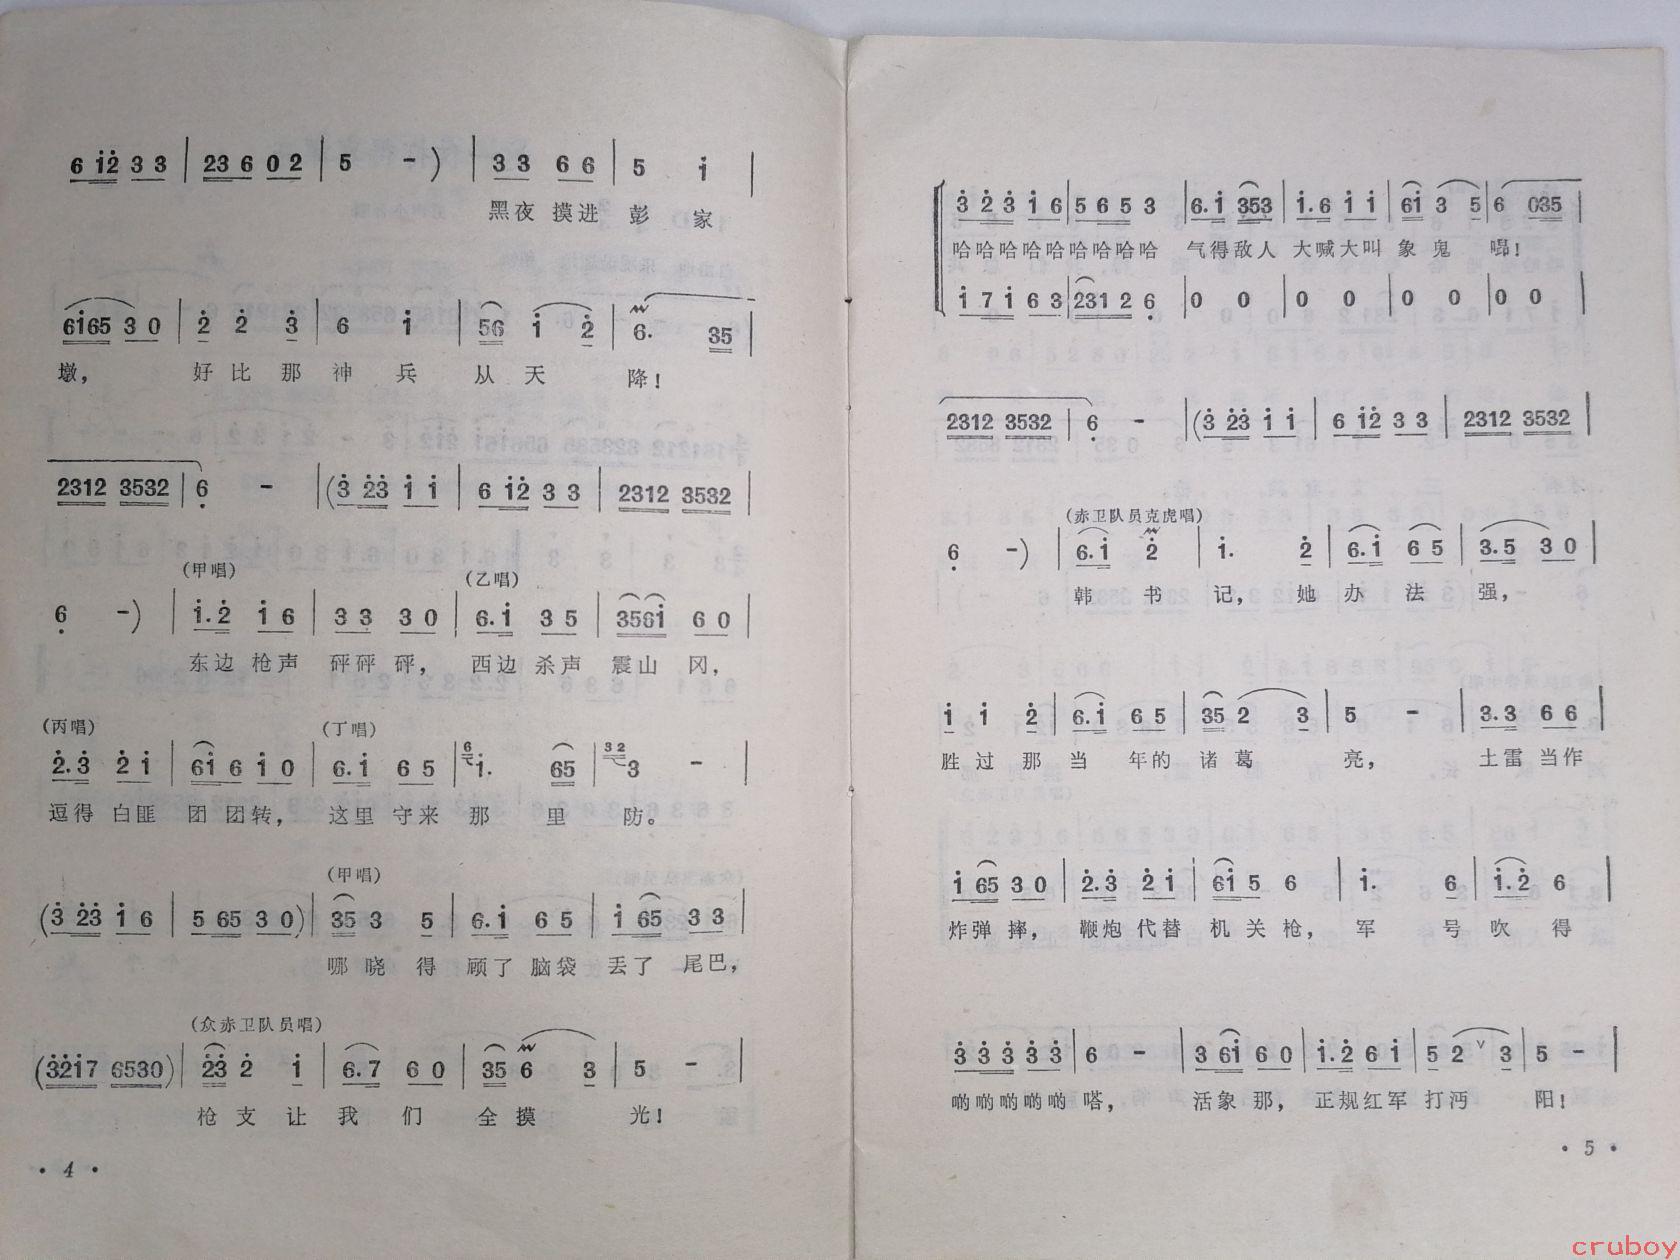 6 i̇2̇ 3 3 | 23 6 0 2 | 5 - ) | 3 3 6 6 | 5 i̇ |
黑夜 摸进 彭 家
6i̇65 3 0 | 2̇ 2̇ 3̇ | 6 i̇ | 56 i̇ 2̇ | 6. 35 |
墩， 好 比 那 神 兵 从 天 降！
2312 3532 | 6̣ - | (3̇ 2̇3̇ i̇ i̇ | 6 i̇2̇ 3 3 | 2312 3532 |
(甲唱) (乙唱)
6̣ -) | i̇.2̇ i̇ 6 | 3 3 3 0 | 6.i̇ 3 5 | 356i̇ 6 0 |
东边 枪声 砰砰 砰， 西边 杀声 震山 冈，
(丙唱) (丁唱)
2̇.3̇ 2̇ i̇ | 6i̇ 6 i̇ 0 | 6.i̇ 6 5 | 6 i̇. 65 | 32 3 - |
逗得 白匪 团 团转， 这里 守来 那 里 防。
(甲唱)
(3̇ 2̇3̇ i̇ 6 | 5 65 3 0) | 35 3 5 | 6.i̇ 6 5 | i̇ 65 3 3 |
哪 晓 得 顾了 脑袋 丢了 尾巴，
(众赤卫队员唱)
(3̇2̇i̇7 6530) | 2̇3̇ 2̇ i̇ | 6.7 6 0 | 35 6 3 | 5 - |
枪 支 让 我 们 全 摸 光！
· 4 ·
3̇ 2̇ 3̇ i̇ 6 | 5 6 5 3 | 6.i̇ 353 | i̇.6 i̇ i̇ | 6i̇ 3 5 | 6 035 |
哈哈哈哈哈哈哈哈哈 气得敌人 大喊大叫 象 鬼 嚎！
i̇ 7 i̇ 6 3 | 231 2 6̣ | 0 0 | 0 0 | 0 0 | 0 0 |
2312 3532 | 6̣ - | (3̇ 2̇3̇ i̇ i̇ | 6 i̇2̇ 3 3 | 2312 3532 |
(赤卫队员克虎唱)
6̣ -) | 6.i̇ 2̇ | i̇. 2̇ | 6.i̇ 6 5 | 3.5 3 0 |
韩 书 记， 她 办 法 强，
i̇ i̇ 2̇ | 6.i̇ 6 5 | 35 2 3 | 5 - | 3.3 6 6 |
胜 过 那 当 年的 诸 葛 亮， 土雷 当作
i̇ 65 3 0 | 2̇.3̇ 2̇ i̇ | 6i̇ 5 6 | i̇. 6 | i̇.2̇ 6 |
炸弹 摔， 鞭炮 代替 机 关 枪， 军 号 吹 得
3̇ 3̇ 3̇ 3̇ 3̇ | 6 - | 3 6i̇ 6 0 | i̇.2̇ 6 i̇ | 5 2 ∨ 3 | 5 - |
哟哟哟哟哟 嗒， 活象 那， 正规红军 打沔 阳！
· 5 ·
cruboy